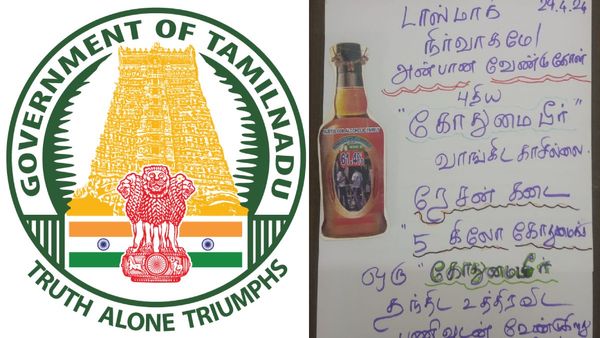 GOVERNMENT OF TAMILNADU
TRUTH ALONE TRIUMPHS
29.4.24
டாஸ்மாக்
நிர்வாகமே!
அன்பான வேண்டுகோள்
புதிய
"கோதுமை பீர்"
வாங்கிட காசில்லை.
ரேசன் கடை
"5 கிலோ கோதுமைக்கு
ஒரு "கோதுமைபீர்
தந்திட உத்திரவிட
பணிவுடன் வேண்டுகிறது